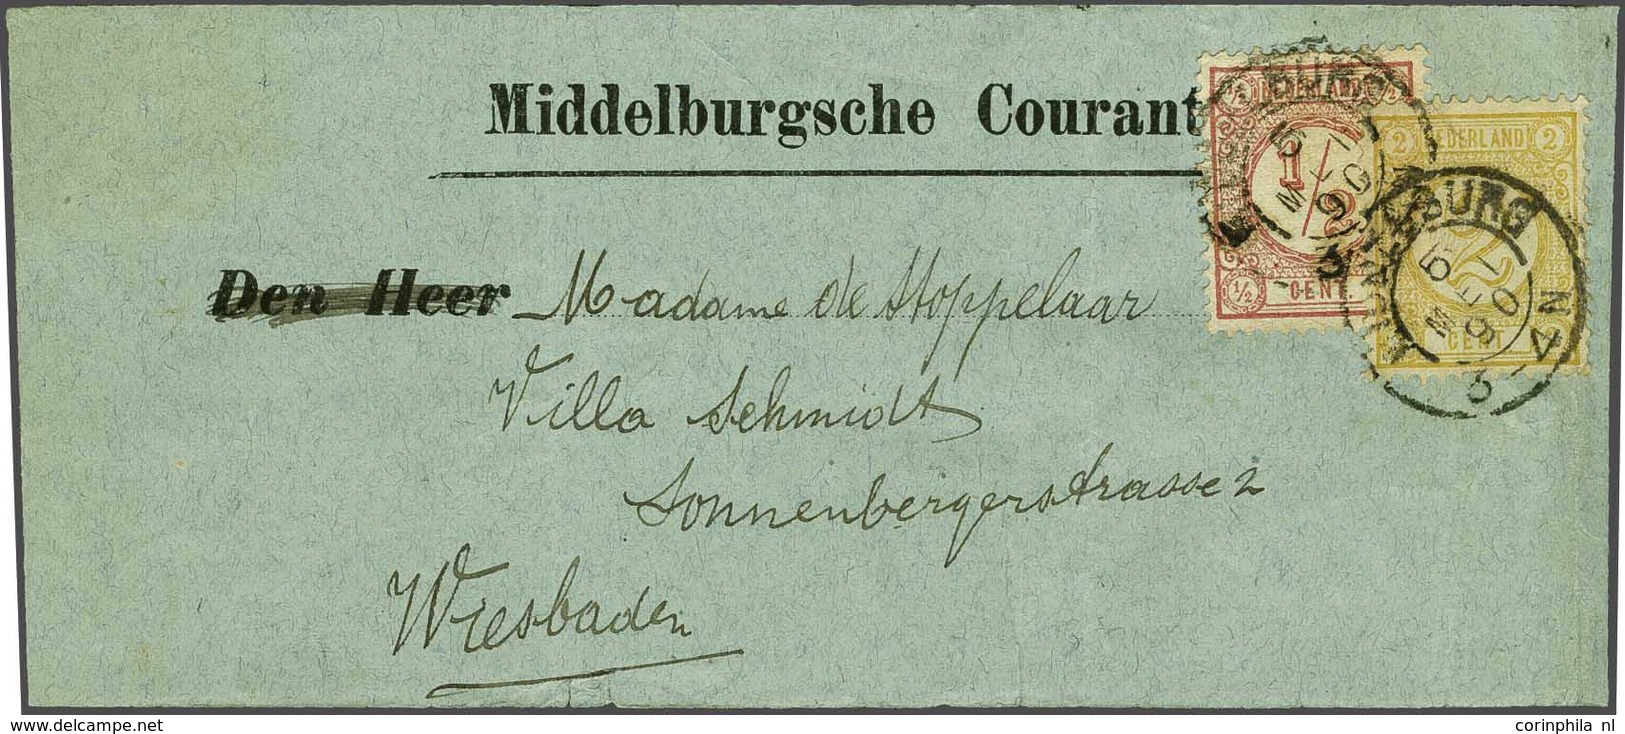 Middelburgsche Courant
Den Heer Madame de Stoppelaar
Villa Schmidt
Sonnenbergerstrasse 2
Wiesbaden
½ NEDERLAND ½
1/2
½ CENT
2 NEDERLAND 2
2
CENT
BURG
5 MEI 90
3
MIDDELBURG
5 MEI 90
3-4N
www.delcampe.net
corinphila nl